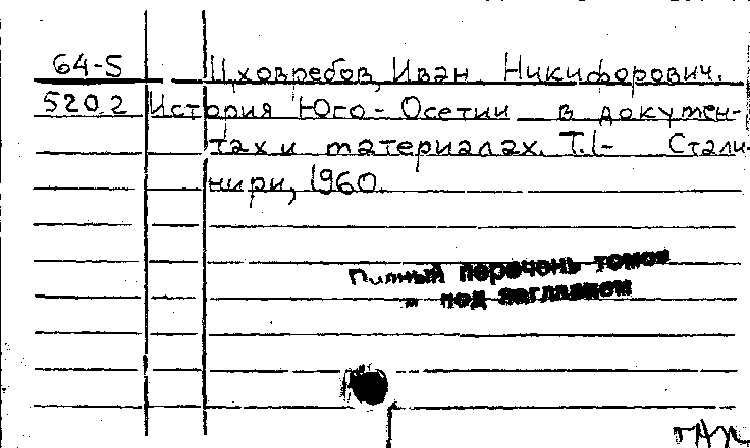 64-5 Цховребов, Иван Никифорович.
5202 История Юго-Осетии в докумен-
тах и материалах. Т.1- Стали-
нири, 1960.
Полный перечень томов
под заглавием